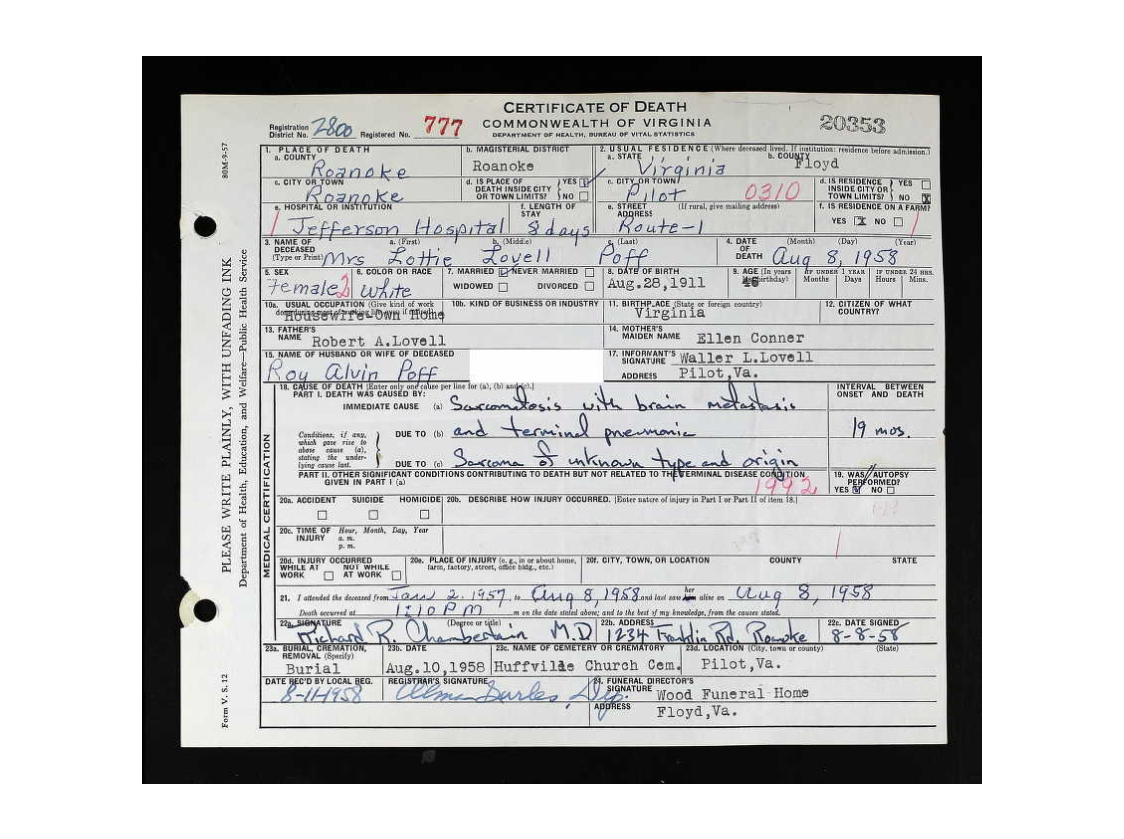 CERTIFICATE OF DEATH
COMMONWEALTH OF VIRGINIA
DEPARTMENT OF HEALTH, BUREAU OF VITAL STATISTICS
Registration District No. 2800 Registered No. 777
20353
80M-9-57
PLEASE WRITE PLAINLY, WITH UNFADING INK
Department of Health, Education, and Welfare—Public Health Service
Form V. S. 12
1. PLACE OF DEATH
a. COUNTY Roanoke
b. MAGISTERIAL DISTRICT Roanoke
2. USUAL RESIDENCE (Where deceased lived. If institution: residence before admission.)
a. STATE Virginia
b. COUNTY Floyd
c. CITY OR TOWN Roanoke
d. IS PLACE OF DEATH INSIDE CITY OR TOWN LIMITS? YES NO
c. CITY OR TOWN Pilot 0310
d. IS RESIDENCE INSIDE CITY OR TOWN LIMITS? YES NO X
e. HOSPITAL OR INSTITUTION Jefferson Hospital
f. LENGTH OF STAY 8 days
e. STREET ADDRESS (If rural, give mailing address) Route-1
f. IS RESIDENCE ON A FARM? YES X NO
3. NAME OF DECEASED (Type or Print) a. (First) b. (Middle) c. (Last)
Mrs Lottie Lovell Poff
4. DATE OF DEATH (Month) (Day) (Year) Aug 8, 1958
5. SEX Female 2
6. COLOR OR RACE White
7. MARRIED NEVER MARRIED WIDOWED DIVORCED
8. DATE OF BIRTH Aug.28,1911
9. AGE (In years birthday) 46
IF UNDER 1 YEAR Months Days
IF UNDER 24 HRS. Hours Mins.
10a. USUAL OCCUPATION (Give kind of work
Housewife-Own Home
10b. KIND OF BUSINESS OR INDUSTRY
11. BIRTHPLACE (State or foreign country) Virginia
12. CITIZEN OF WHAT COUNTRY?
13. FATHER'S NAME Robert A.Lovell
14. MOTHER'S MAIDEN NAME Ellen Conner
15. NAME OF HUSBAND OR WIFE OF DECEASED Roy Alvin Poff
17. INFORMANT'S SIGNATURE Waller L.Lovell
ADDRESS Pilot,Va.
MEDICAL CERTIFICATION
18. CAUSE OF DEATH [Enter only one cause per line for (a), (b) and (c).]
INTERVAL BETWEEN ONSET AND DEATH
PART I. DEATH WAS CAUSED BY:
IMMEDIATE CAUSE (a) Sarcomatosis with brain metastasis
Conditions, if any, which gave rise to above cause (a), stating the underlying cause last.
DUE TO (b) and terminal pneumonia 19 mos.
DUE TO (c) Sarcoma of unknown type and origin
PART II. OTHER SIGNIFICANT CONDITIONS CONTRIBUTING TO DEATH BUT NOT RELATED TO THE TERMINAL DISEASE CONDITION GIVEN IN PART I (a)
1992
19. WAS AUTOPSY PERFORMED? YES NO
20a. ACCIDENT SUICIDE HOMICIDE
20b. DESCRIBE HOW INJURY OCCURRED. [Enter nature of injury in Part I or Part II of item 18.]
20c. TIME OF INJURY Hour, Month, Day, Year a. m. p. m.
20d. INJURY OCCURRED WHILE AT WORK NOT WHILE AT WORK
20e. PLACE OF INJURY (e. g., in or about home, farm, factory, street, office bldg., etc.)
20f. CITY, TOWN, OR LOCATION COUNTY STATE
21. I attended the deceased from Jan 2. 1957, to Aug 8, 1958 and last saw her alive on Aug 8, 1958
Death occurred at 1:10 PM m on the date stated above; and to the best of my knowledge, from the causes stated.
22a. SIGNATURE (Degree or title) Richard R. Chamberlain M.D
22b. ADDRESS 1234 Franklin Rd. Roanoke
22c. DATE SIGNED 8-8-58
23a. BURIAL, CREMATION, REMOVAL (Specify) Burial
23b. DATE Aug.10,1958
23c. NAME OF CEMETERY OR CREMATORY Huffville Church Cem.
23d. LOCATION (City, town or county) (State) Pilot,Va.
DATE REC'D BY LOCAL REG. 8-11-1958
REGISTRAR'S SIGNATURE
24. FUNERAL DIRECTOR'S SIGNATURE Wood Funeral Home
ADDRESS Floyd,Va.